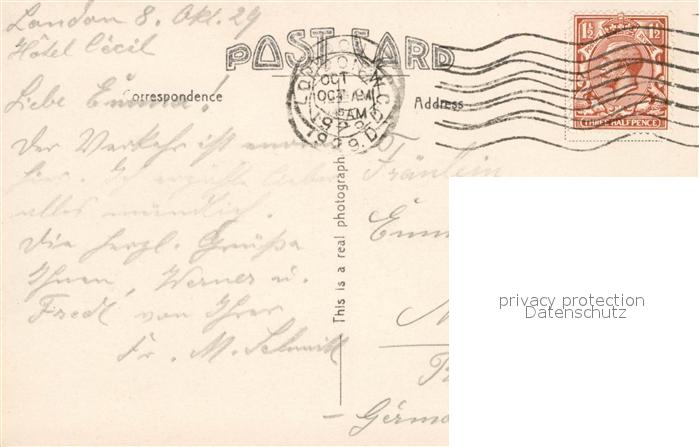 London 8. Okt. 29
Hôtel Cécil
POST CARD
Correspondence
Address
LONDON
OCT
1929
THREE HALFPENCE
1½ 1½
Liebe Emma!
Der Verkehr ist
hier. Ich erzähle lieber
alles mündlich.
Die herzl. Grüsse
Ihnen, Werner u.
Fredl von Ihrer
Fr. M. Schmitt
This is a real photograph
Fräulein
privacy protection
Datenschutz